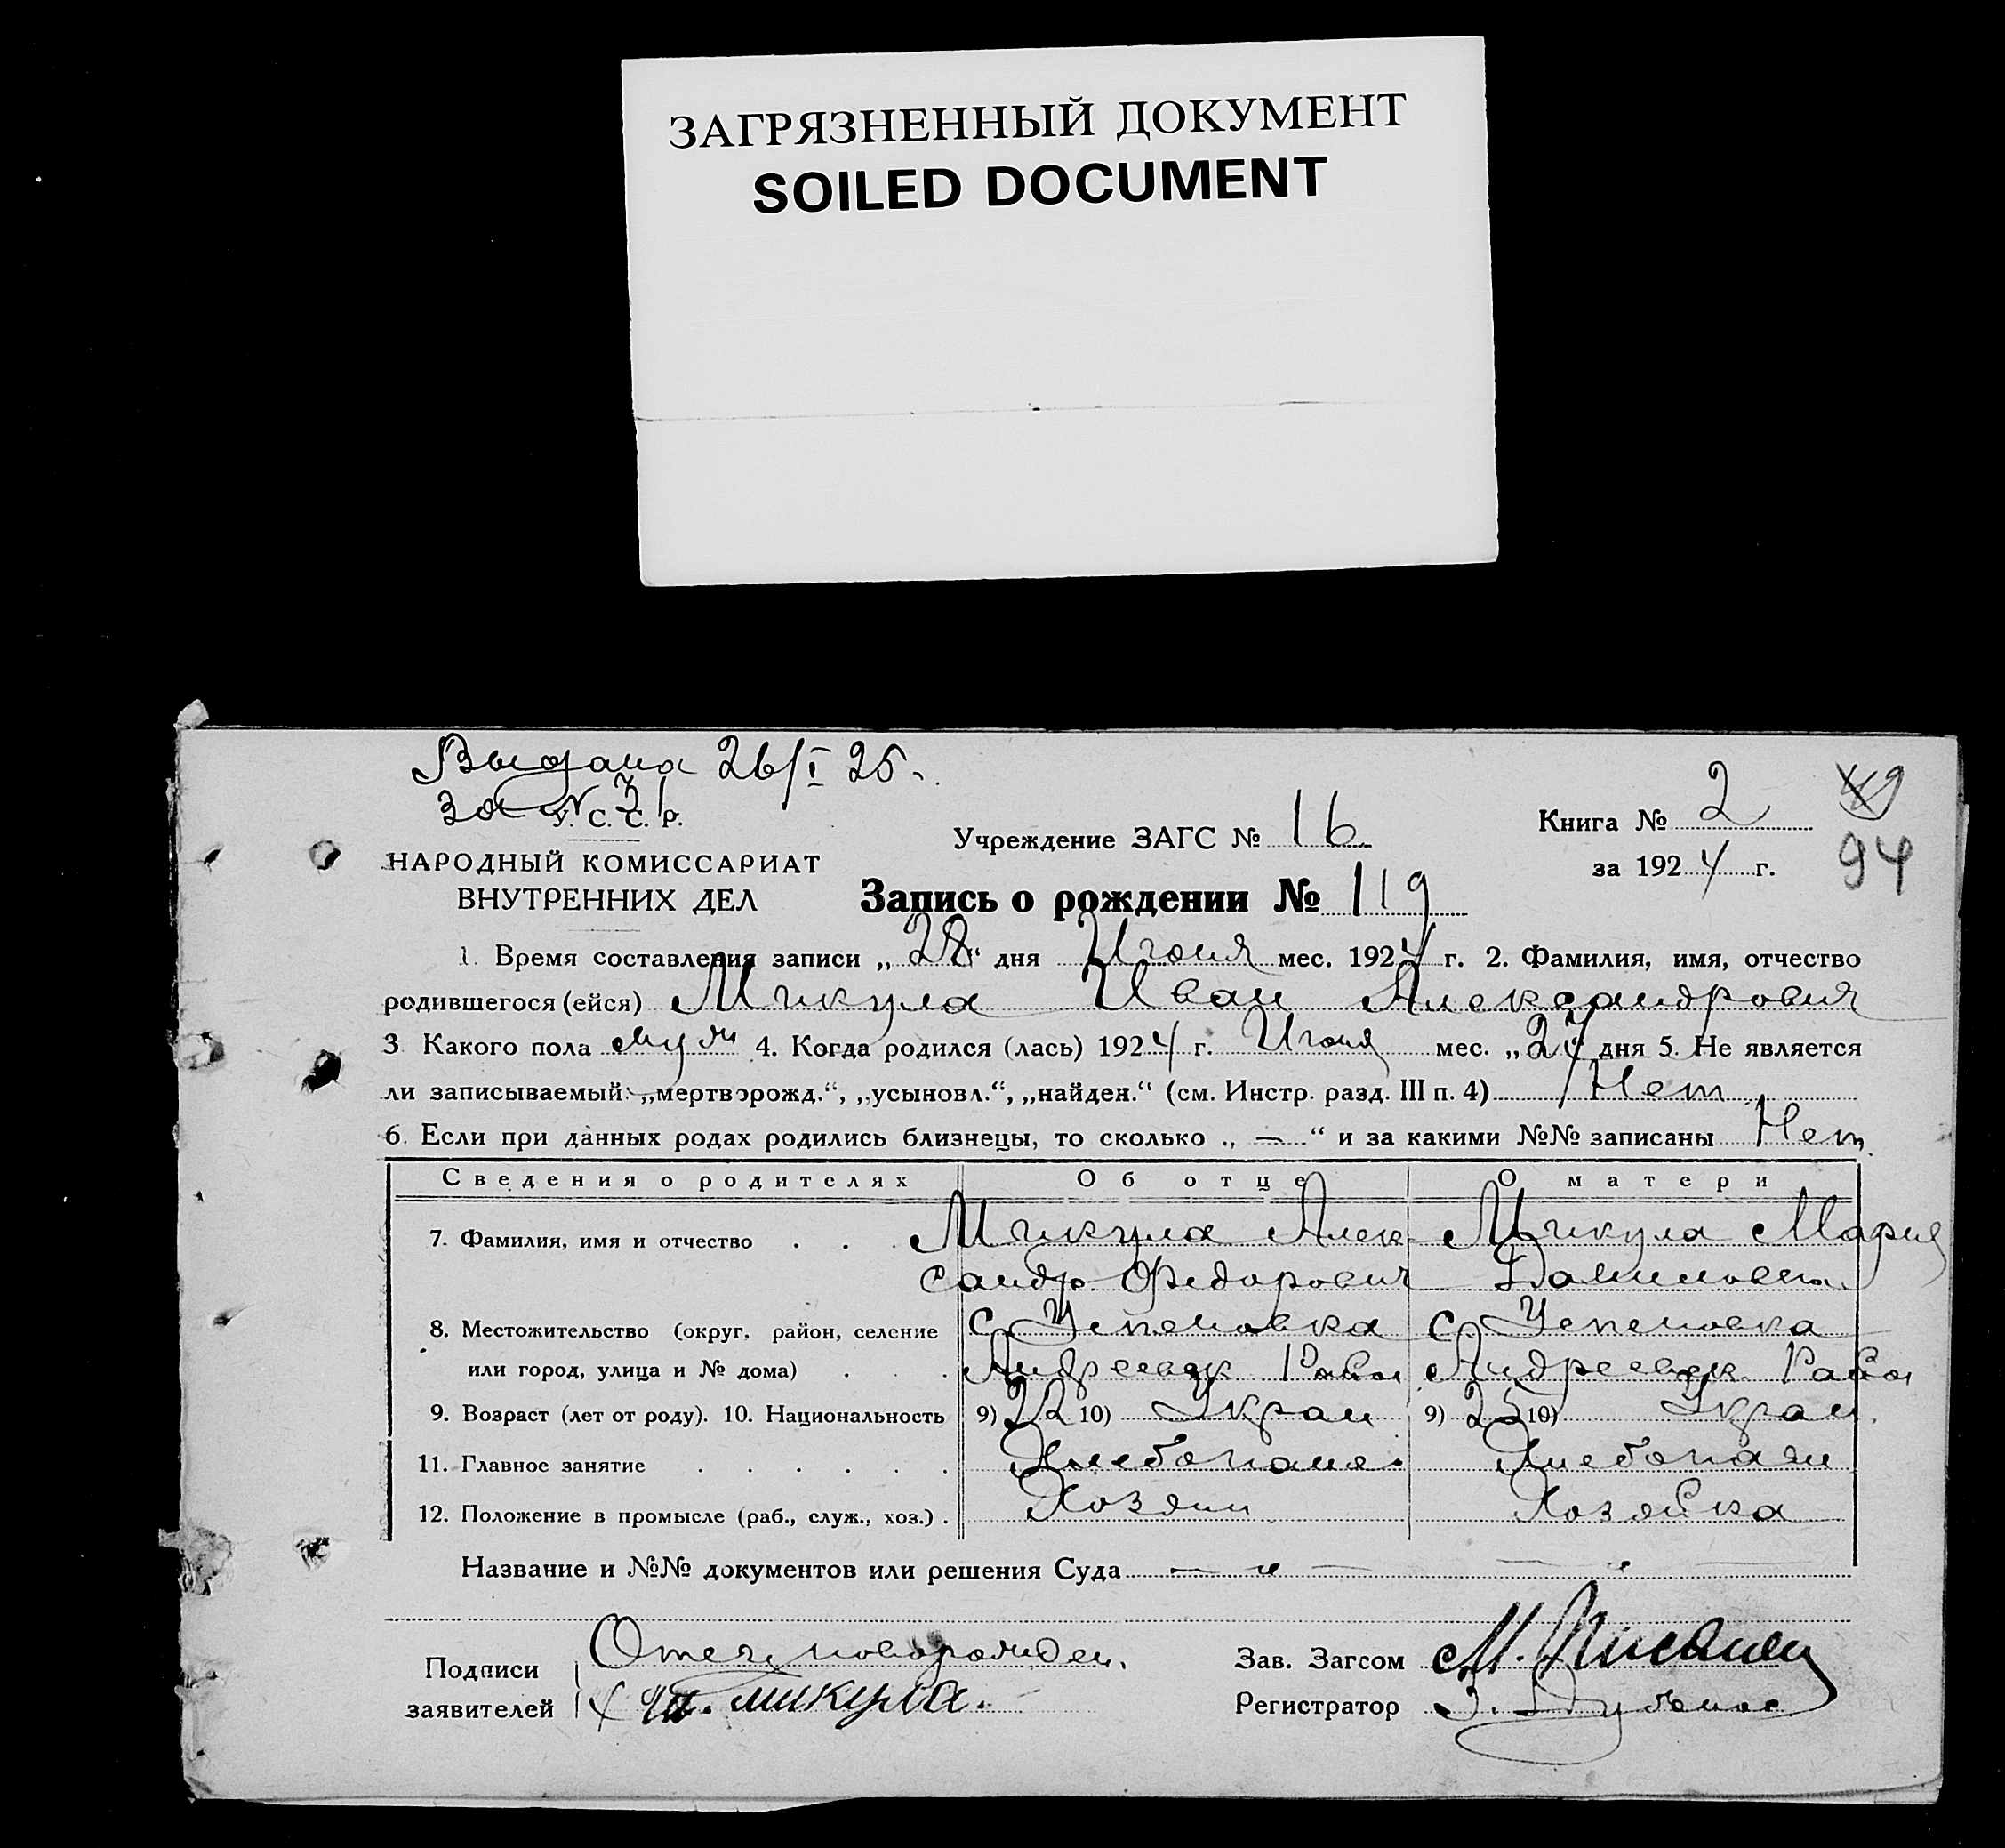 ЗАГРЯЗНЕННЫЙ ДОКУМЕНТ
SOILED DOCUMENT
Выдана 26/I 25.
За № 71
У. С. С. Р.
НАРОДНЫЙ КОМИССАРИАТ
ВНУТРЕННИХ ДЕЛ
Учреждение ЗАГС № 16
Книга № 2
за 1924 г.
94
Запись о рождении № 119
1. Время составления записи „28“ дня Июня мес. 1924 г. 2. Фамилия, имя, отчество
родившегося (ейся) Микула Иван Александрович
3. Какого пола муж 4. Когда родился (лась) 1924 г. Июня мес. „27“ дня 5. Не является
ли записываемый: „мертворожд.“, „усыновл.“, „найден.“ (см. Инстр. разд. III п. 4) Нет
6. Если при данных родах родились близнецы, то сколько „—“ и за какими №№ записаны Нет
Сведения о родителях Об отце О матери
7. Фамилия, имя и отчество . . . Микула Алек- Микула Мария
сандр Федорович Даниловна
8. Местожительство (округ, район, селение с Успеновка с Успеновка
или город, улица и № дома) . . . Андреевск Район Андреевск Район
9. Возраст (лет от роду). 10. Национальность 9) 22 10) Украин 9) 25 10) Украин.
11. Главное занятие . . . . . . Хлебопаш. Хлебопаш
12. Положение в промысле (раб., служ., хоз.) . Хозяин Хозяйка
Название и №№ документов или решения Суда — „ — — „ —
Подписи Отец новорожден. Зав. Загсом М.
заявителей Микула. Регистратор